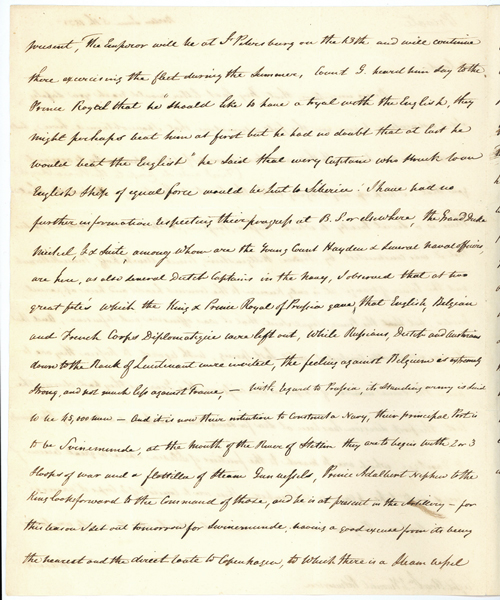 present, The Emperor will be at St Petersburg on the 13th and will continue
there excercising the fleet during the Summer, Count G. heard him say to the
Prince Royal that he "should like to have a tryal with the English, they
might perhaps beat him at first but he had no doubt that at last he
would beat the English" he said that every Captain who struck to an
English Ship of equal force would be sent to Siberia: I have had no
further information respecting their progress at B. S. or elsewhere, the Grand Duke
Michel, & Suite, among whom are the Young Count Hayden & several naval officers
are here, as also several Dutch Captains in the Navy, I observed that at two
great fetes which the King & Prince Royal of Prussia gave, that English, Belgian
and French Corps Diplomatique were left out, while Russians, Dutch and Austrians
down to the Rank of Lieutenant were invited, the feeling against Belgium is extremely
strong, and not much less against France, — With regard to Prussia, its standing army is said
to be 45,000 men — And it is now their intention to Construct a Navy, their principal Port is
to be Swinemunde, at the Mouth of the River of Stettin they are to begin with 2 or 3
Sloops of war and a flotilla of Steam Gun vessels, Prince Adalbert Nephew to the
King looks forward to the Command of those, and he is at present in the Artillery — for
this reason I set out tomorrow for Swinemunde, having a good excuse from its being
the nearest and the direct route to Copenhagen, to which there is a Steam vessel